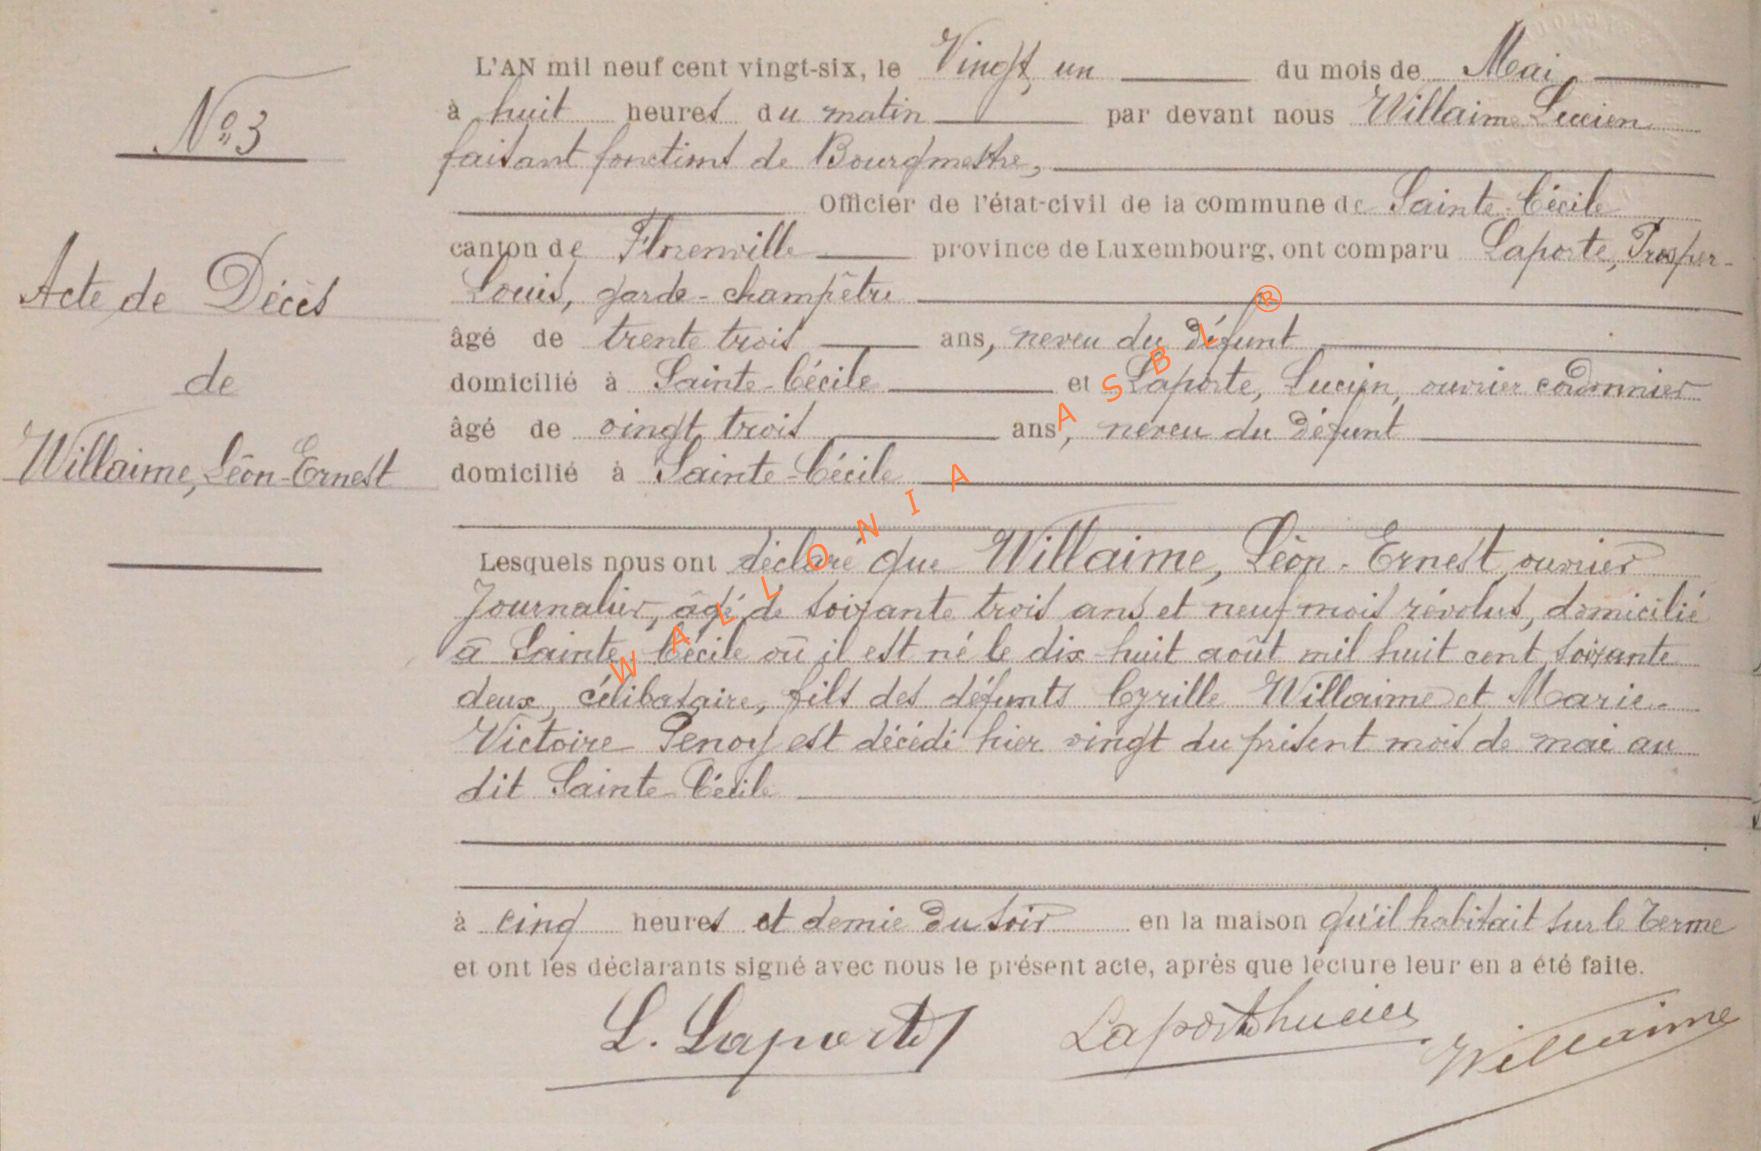 N° 3
Acte de Décès
de
Willaime, Léon-Ernest
L'AN mil neuf cent vingt-six, le Vingt un du mois de Mai
à huit heures du matin par devant nous Willaime Lucien
faisant fonctions de Bourgmestre,
Officier de l'état-civil de la commune de Sainte-Cécile
canton de Florenville province de Luxembourg, ont comparu Laporte, Prosper-
Louis, garde-champêtre
âgé de trente trois ans, neveu du défunt
domicilié à Sainte-Cécile et Laporte, Lucien, ouvrier cordonnier
âgé de vingt trois ans, neveu du défunt
domicilié à Sainte-Cécile
Lesquels nous ont déclaré que Willaime, Léon-Ernest, ouvrier
Journalier, âgé de soixante trois ans et neuf mois révolus, domicilié
à Sainte-Cécile où il est né le dix-huit août mil huit cent soixante
deux, célibataire, fils des défunts Cyrille Willaime et Marie-
Victoire Penoy est décédé hier vingt du présent mois de mai au
dit Sainte-Cécile
à cinq heures et demie du soir en la maison qu'il habitait sur le Terme
et ont les déclarants signé avec nous le présent acte, après que lecture leur en a été faite.
L. Laporte Laporte Lucien Willaime
WALLONIA ASBL ®